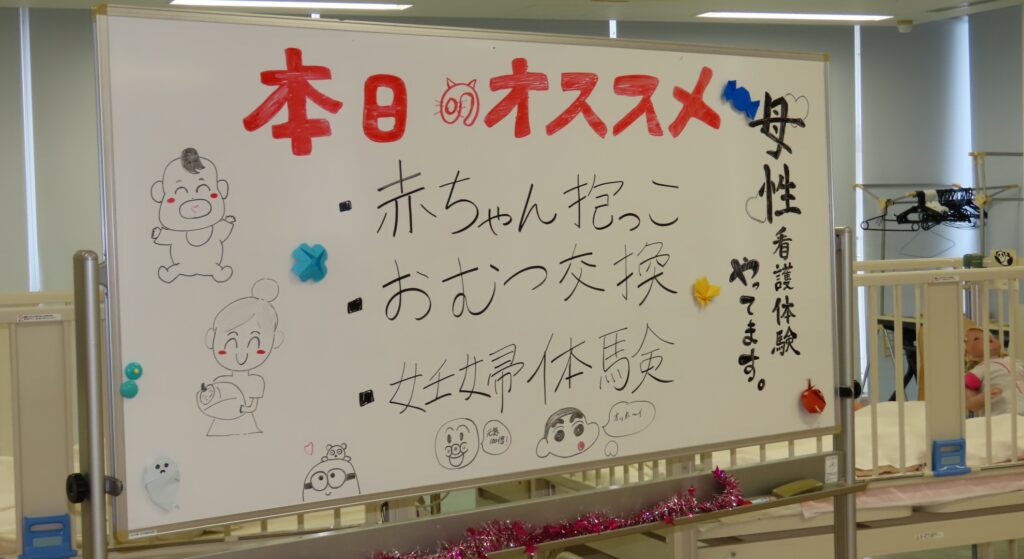 本日のオススメ
・赤ちゃん抱っこ
・おむつ交換
・妊婦体験
母性看護体験
やってます。
元気100倍!